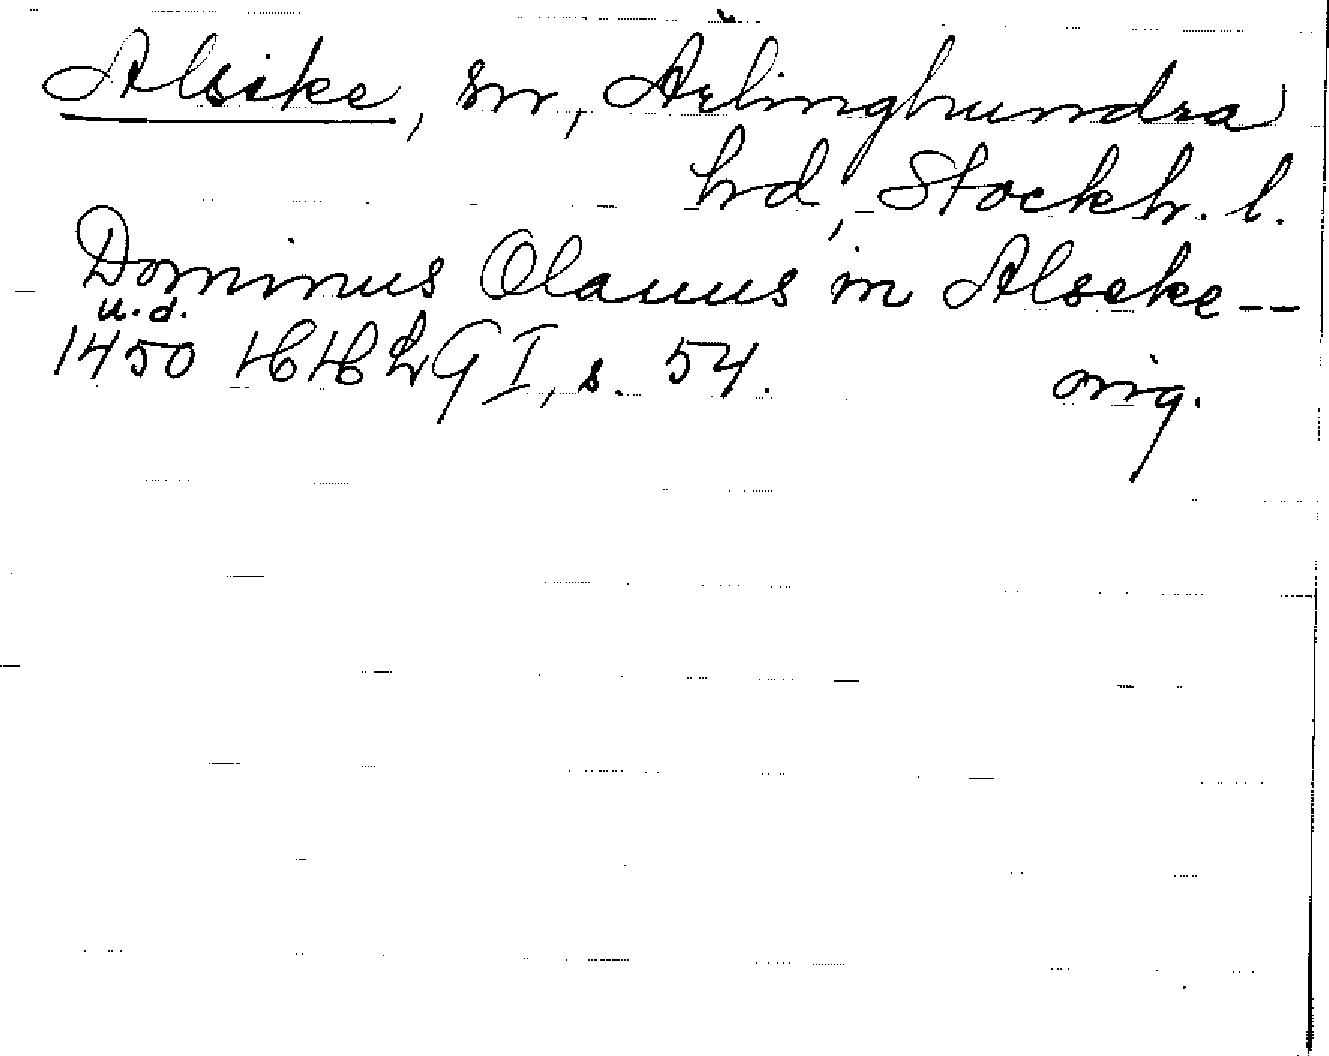 Alsike, sn, Ärlinghundra
hd, Stockh. l.
Dominus Olauus in Alseke--
u.d.
1450 HHLG I, s. 54. orig.